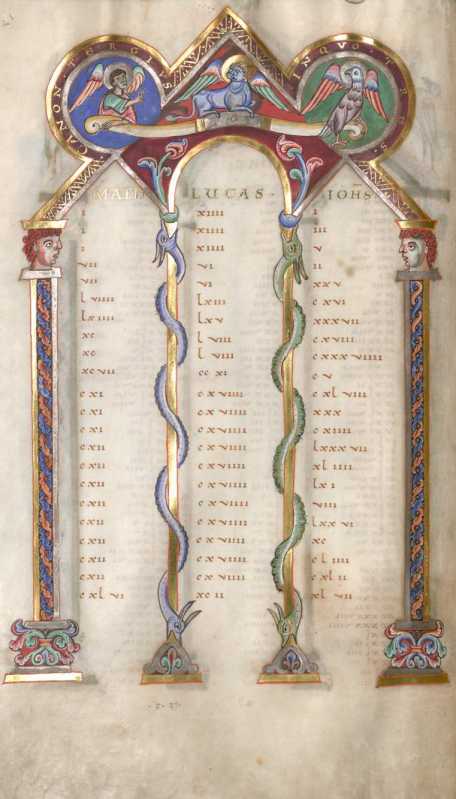 CANON · TERCIVS IN QVO · TRES
MATH LUCAS IOHS
i xiiii i
i xiiii iii
i xiiii v
vii vi ii
vii vi xxv
lviiii lxiii cxvi
lxiiii lxv xxxvii
xc lviii cxviii
xc lviiii cxxxviiii
xcvii ccxi cv
cxi cxviiii cxlviii
cxi cxviiii xxx
cxi cxviiii cxiiii
cxii cxviiii lxxxvii
cxii cxviiii xliiii
cxii cxviiii lxi
cxii cxviiii viii
cxii cxviiii lxxvi
cxii cxviiii xc
cxii cxviiii cliiii
cxii cxviiii cxlii
cxlvi xcii xlvii